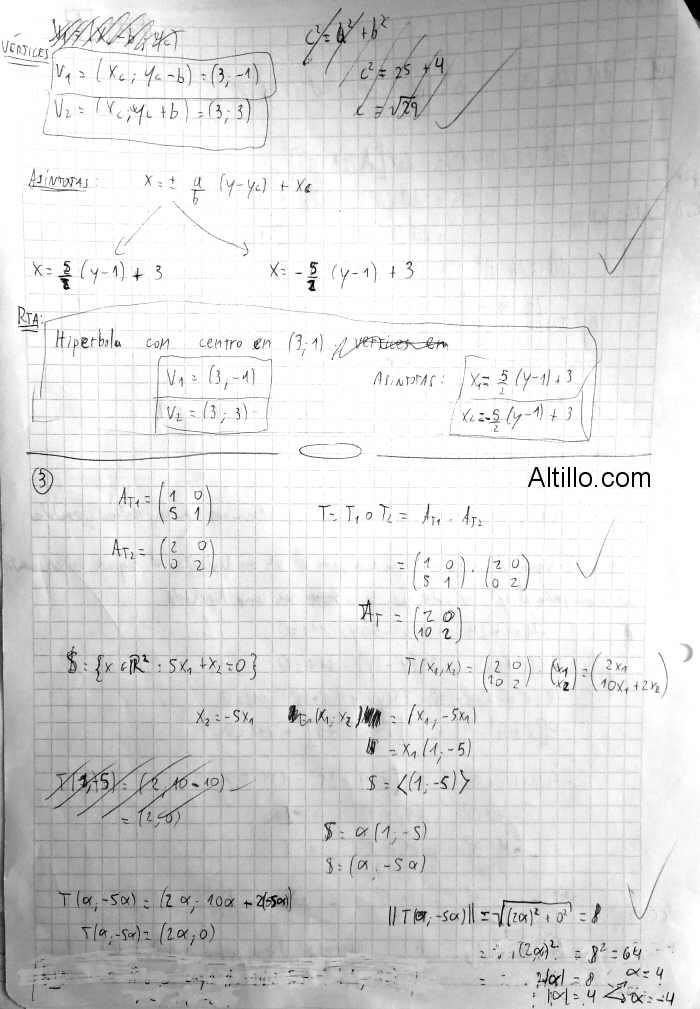 VÉRTICES
V1 = (xc; yc-b) = (3,-1)
V2 = (xc; yc+b) = (3; 3)
c² = a² + b²
c² = 25 + 4
c = √29
ASÍNTOTAS: x = ± a/b (y-yc) + xc
x = 5/2 (y-1) + 3
x = -5/2 (y-1) + 3
RTA:
Hiperbola con centro en (3;1) vertices en
V1 = (3,-1)
V2 = (3; 3)
ASINTOTAS:
x1 = 5/2 (y-1) + 3
x2 = -5/2 (y-1) + 3
Altillo.com
3
AT1 = (1 0
5 1)
AT2 = (2 0
0 2)
T = T1 o T2 = AT1 . AT2
= (1 0
5 1) . (2 0
0 2)
AT = (2 0
10 2)
$ = {x ∈ R² : 5x1 + x2 = 0}
T(x1, x2) = (2 0
10 2) (x1
x2) = (2x1
10x1 + 2x2)
x2 = -5x1
(x1; x2) = (x1, -5x1)
= x1 (1, -5)
$ = <(1; -5)>
T(1,-5) = (2, 10-10)
= (2,0)
$ = α (1; -5)
$ = (α, -5α)
T(α, -5α) = (2α; 10α + 2(-5α))
T(α, -5α) = (2α; 0)
||T(α, -5α)|| = √((2α)² + 0²) = 8
(2α)² = 8² = 64
2|α| = 8
|α| = 4
α = 4
α = -4